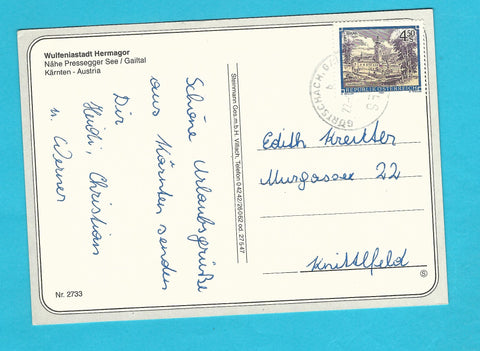 Wulfeniastadt Hermagor
Nähe Pressegger See / Gailtal
Kärnten - Austria
Schöne Urlaubsgrüße
aus Kärnten senden
Dir
Heidi, Christian
u. Werner
Nr. 2733
Steinmann Ges.m.b.H. Villach, Telefon 0 42 42/28 0 62 od. 27 5 47
4.50
S
REPUBLIK ÖSTERREICH
GÖRTSCHACH
Edith Kreitter
Murgasse 22
Knittlfeld
S